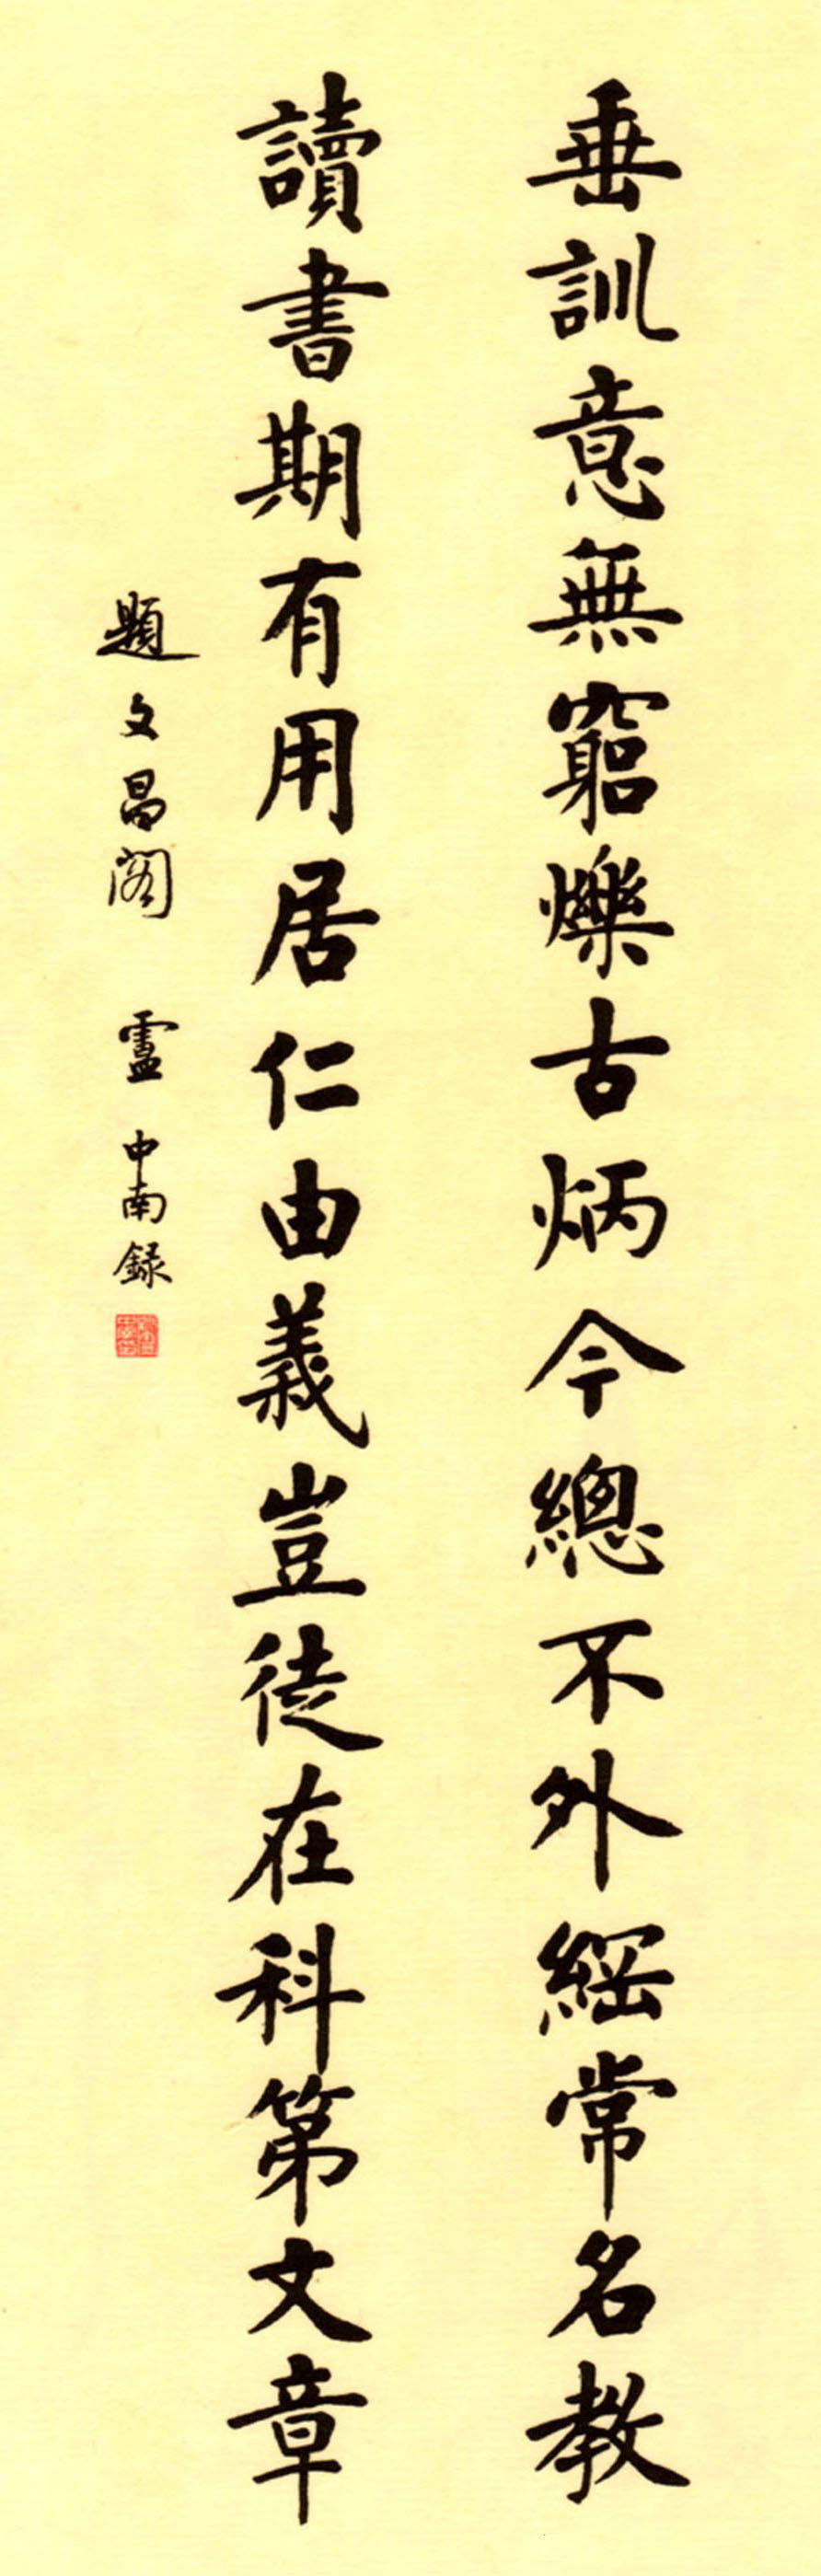 垂訓意無窮爍古炳今總不外綱常名教
讀書期有用居仁由義豈徒在科第文章
題文昌閣 盧中南録